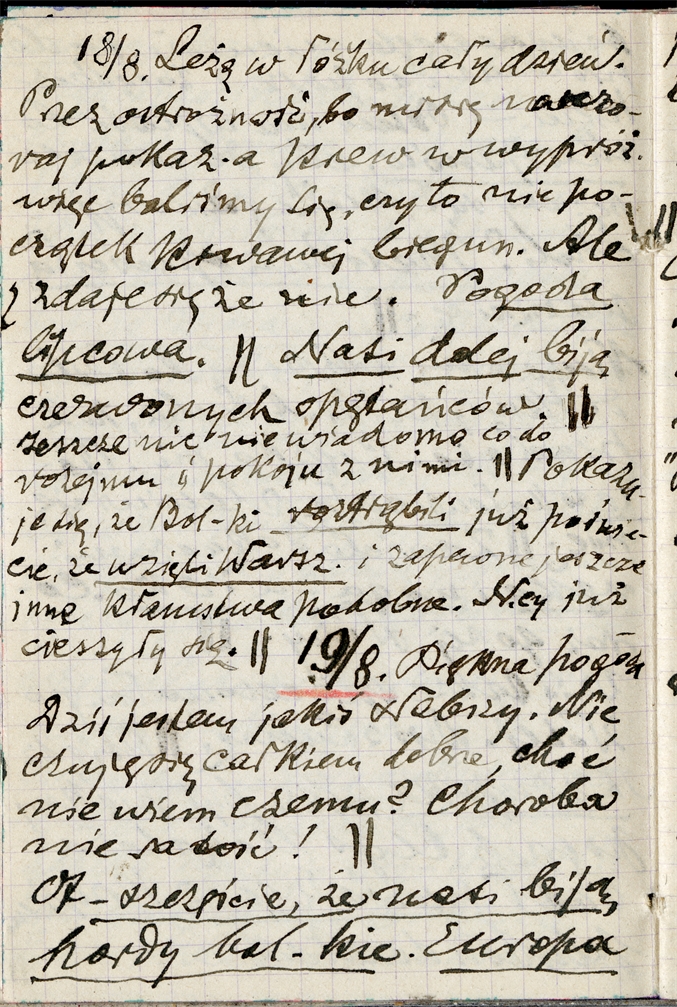 18/8. Leżę w łóżku cały dzień.
Przez ostrożność, bo mi się wczo-
raj pokaz-a krew w wypróż.
więc baliśmy się, czy to nie po-
czątek krwawej biegun. Ale
zdaje się że nie. Pogoda
lipcowa. || Nasi dalej biją
czerwonych opętańców. ||
Jeszcze nic nie wiadomo co do
rozejmu i pokoju z nimi. || Pokazu-
je się, że Bol-ki roztrąbili już po świe-
cie, że wzięli Warsz. i zapewne jeszcze
inne kłamstwa podobne. N-cy już
cieszyły się. || 19/8. Piękna pogoda
Dziś jestem jakiś słabszy. Nie
czuję się całkiem dobrze, choć
nie wiem czemu? Choroba
nie radość! ||
Ot - szczęście, że nasi biją
hordy bol-kie. Europa